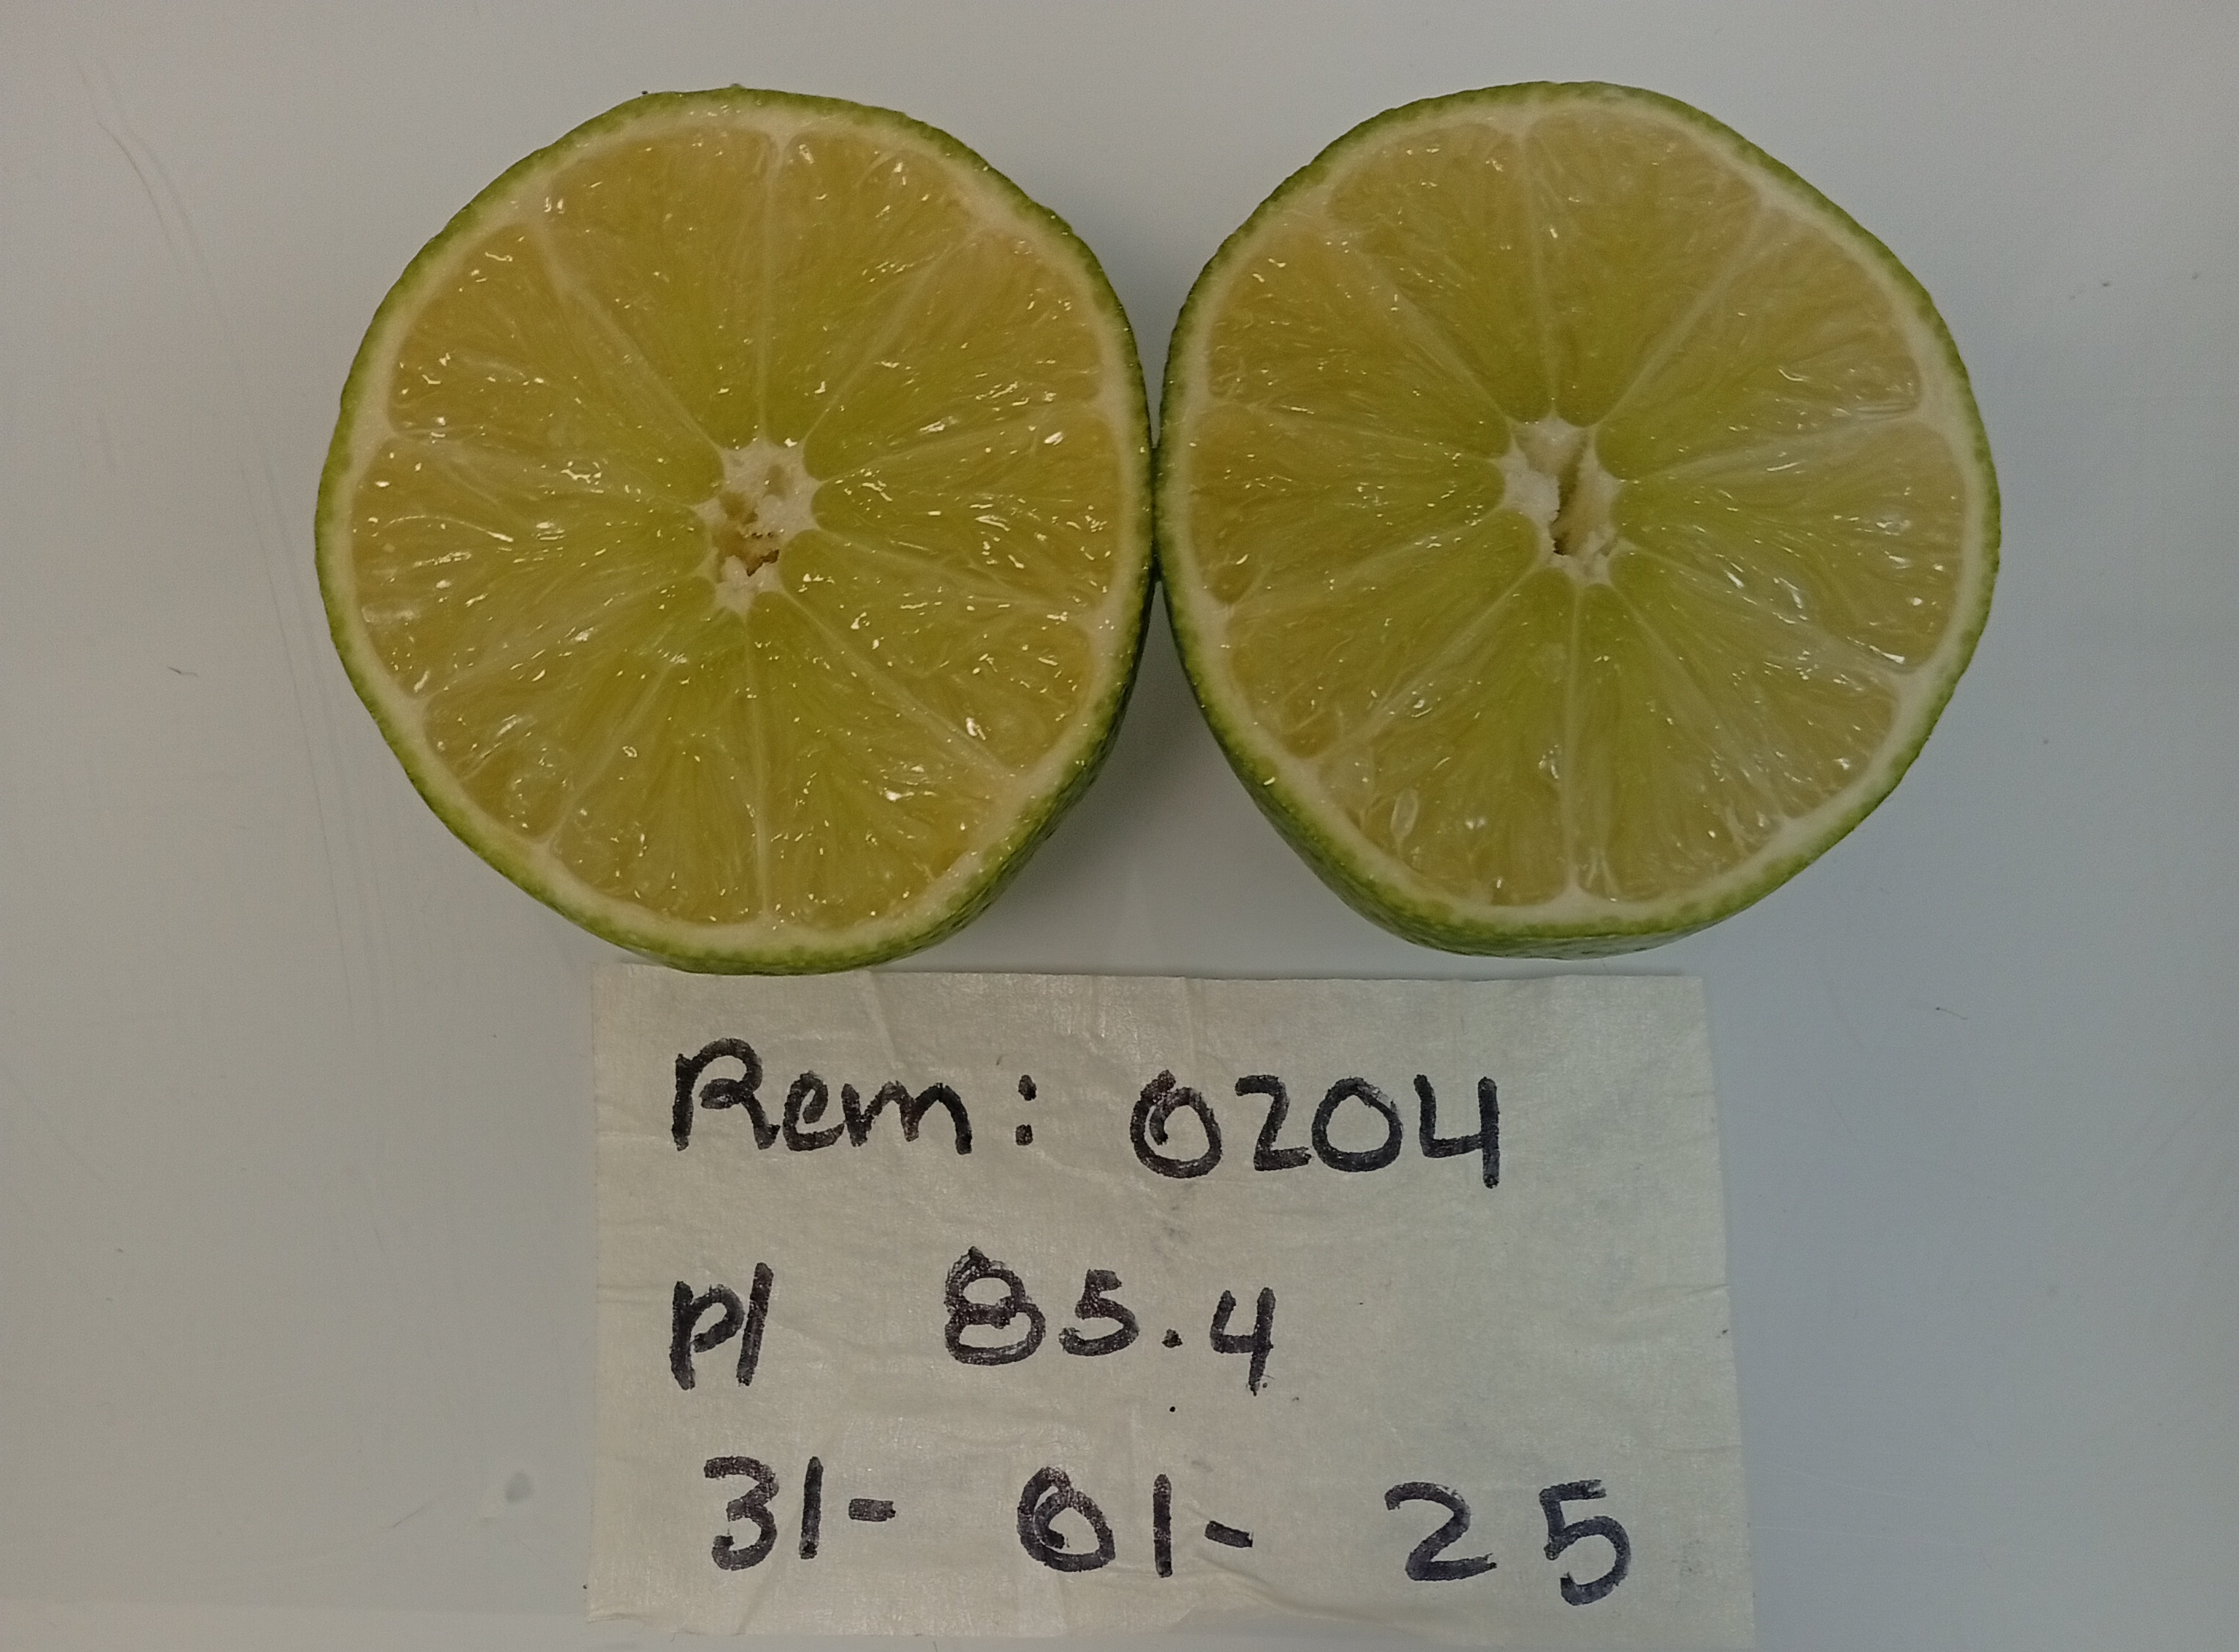 Rem: 0204
P/ 85.4
31- 01- 25